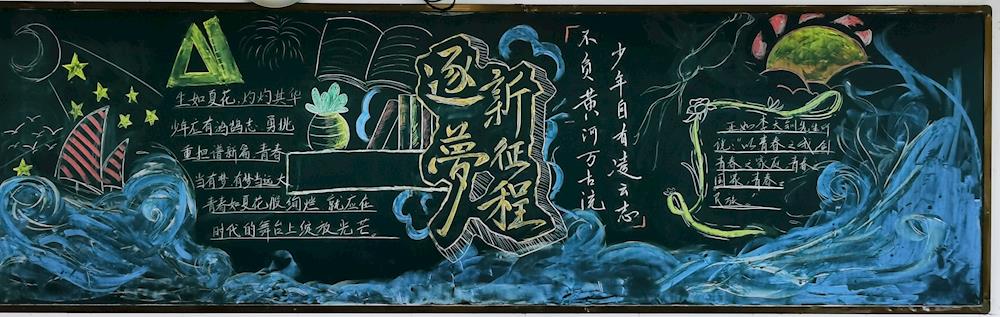 生如夏花,灼灼其华
少年应有鸿鹄志 勇挑
重担谱新篇 青春
当有梦 有梦当远大
青春如夏花般绚烂 就应在
时代的舞台上绽放光芒。
逐梦
新征程
「不负黄河万古流
少年自有凌云志」
正如李大钊先生所
说:“以青春之我,创
青春之家庭,青春之
国家,青春之
民族。